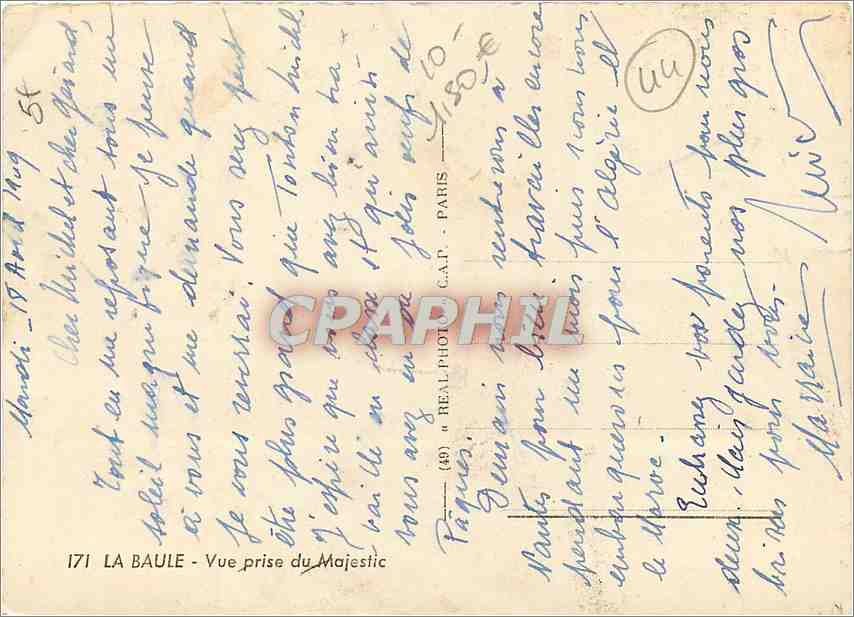 Mardi - 18 Avril 1949
Cher Michel et cher Gérard,
Tout en me reposant sous un
soleil magnifique je pense
à vous et me demande quand
je vous reverrai. Vous serez peut
être plus grand que Tonton Michel
J'espère que vous avez bien tra-
vaillé en classe et qu'aussi
vous avez eu de jolis oeufs de
Pâques.
Demain nous rentrerons à
Nantes pour bien travailler encore
pendant un mois puis nous nous
embarquerons pour l'Algérie et
le Maroc.
Embrassez vos parents pour nous
deux. Mais gardez nos plus gros
bises pour vous.
Marraine
5t
10-
1,50-€
44
(49) « REAL PHOTO » C.A.P. - PARIS
CPARHIL
171 LA BAULE - Vue prise du Majestic